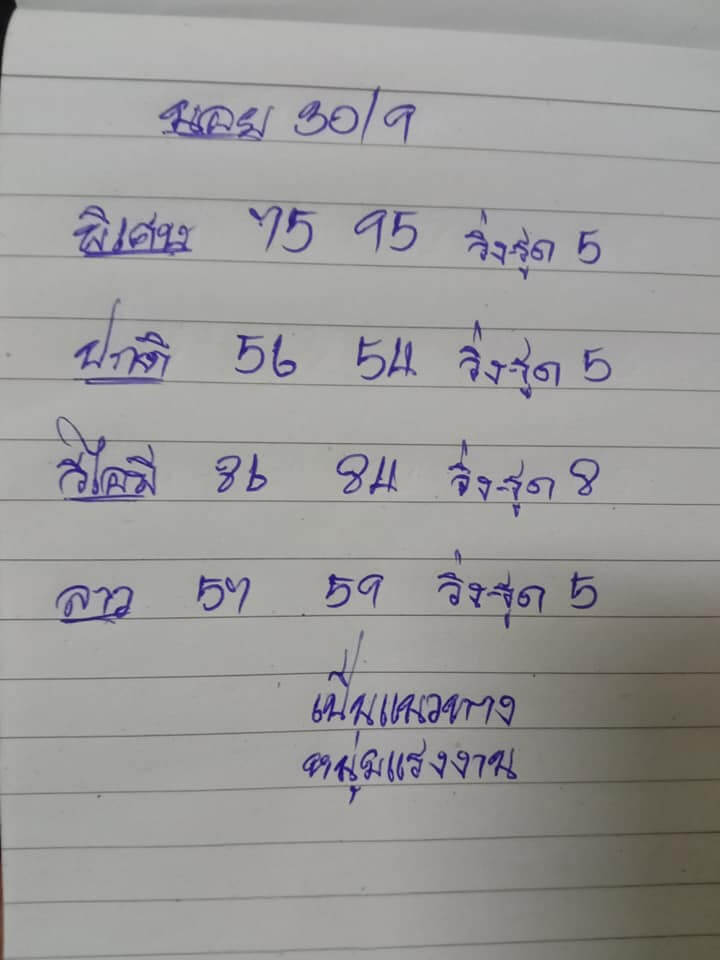 นอย 30/9
พิเศษ 75 95 วิ่งรูด 5
ปกติ 56 54 วิ่งรูด 5
วีไอพี 86 84 วิ่งรูด 8
ลาว 57 59 วิ่งรูด 5
เป็นแนวทาง
หนุ่มแรงงาน